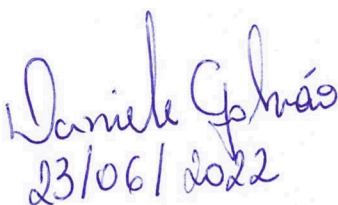 Daniele Galvão
23/06/2022